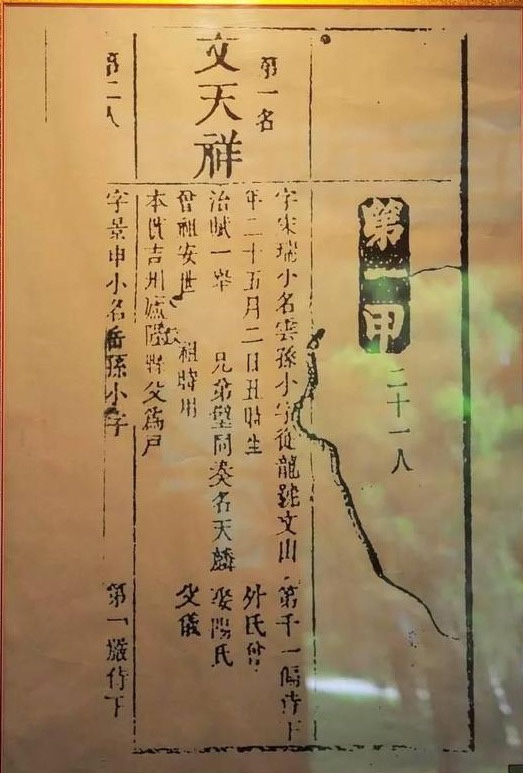 第一甲 二十一人
第一名
文天祥
字宋瑞小名雲孫小字從龍 文山 第千一 侍下
年二十五月二日丑時生 外氏曾
治賦一舉 兄弟 同奏名天麟 娶 氏
曾祖安世 祖時用 父儀
本 吉州廬陵縣父為戶
第二人
字景申小名岳孫小字 第一 侍下